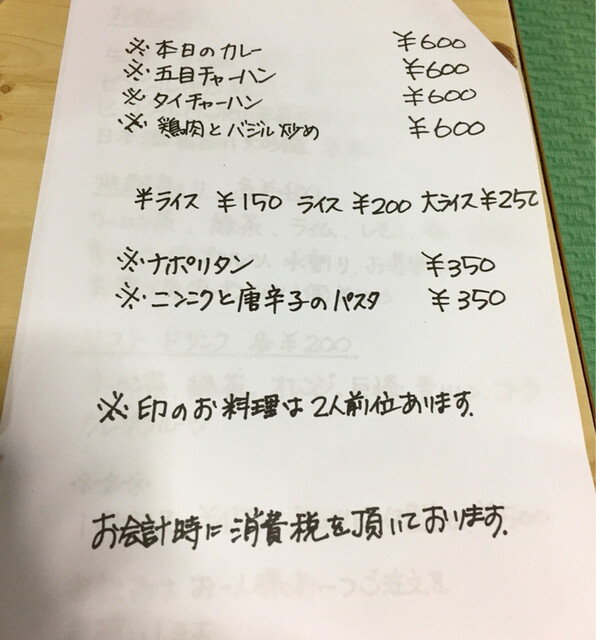 ※ 本日のカレー ¥600
※ 五目チャーハン ¥600
※ タイチャーハン ¥600
※ 鶏肉とバジル炒め ¥600
半ライス ¥150 ライス ¥200 大ライス ¥250
※ ナポリタン ¥350
※ ニンニクと唐辛子のパスタ ¥350
※ 印のお料理は2人前位あります.
お会計時に消費税を頂いております.